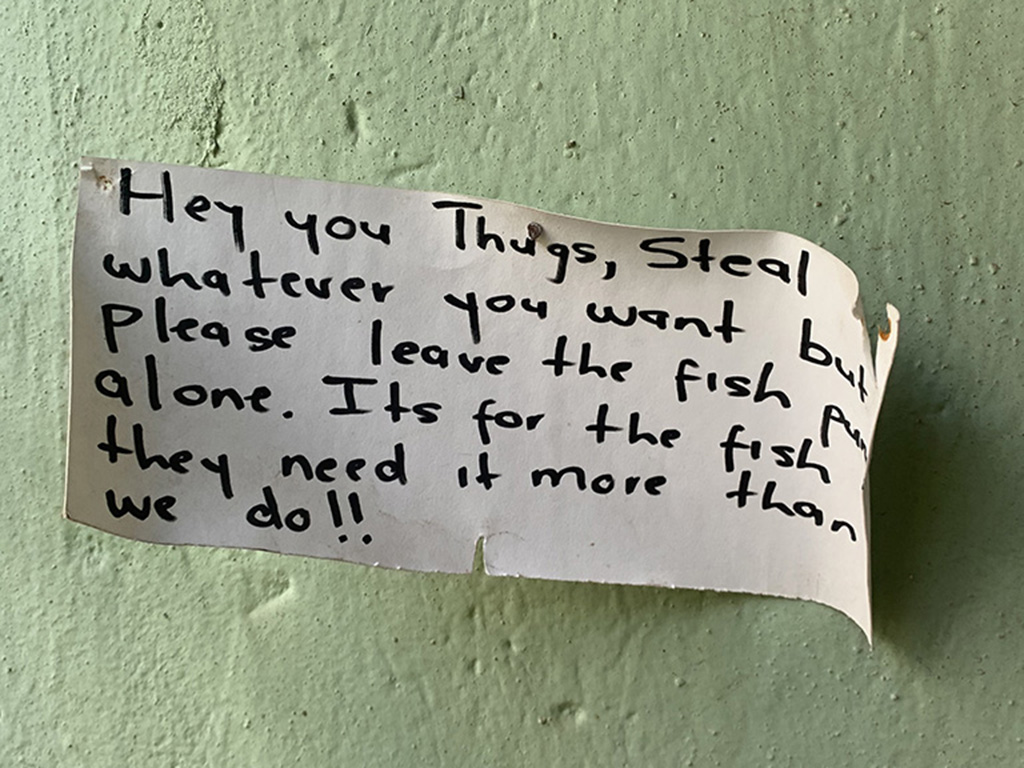 Hey you Thugs, Steal
whatever you want but
please leave the fish
alone. Its for the fish
they need it more than
we do!!